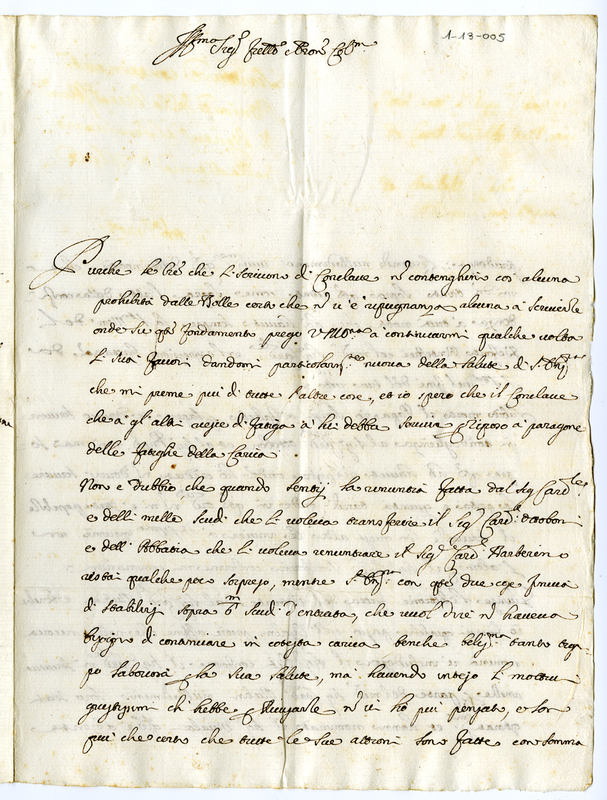 1-13-005
Ill.mo Sig.r fratello Pron Col.mo
Purche le tre che si scrivon di Conclave nõ contenghin cos' alcuna
prohibita dalle Bolle certo che nõ u'è repugnanza alcuna à scriverle
onde su q.to fondamento prego V.S. Ill.ma à continuarmi qualche volta
i suoi favori dandomi particolarm.te nuova della salute di S.
che mi preme più di tutte l'altre cose, et io spero che il Conclave
che à gl'altri è di fatiga à lui debba servir riposo à paragone
delle fatighe della Carica
Non è dubbio, che quando sentij la renuntia fatta dal Sig. Card.le
e delli mille scudi che li voleva transferire il Sig. Card. Ottoboni
e dell'Abbadia che li voleva renuntiare il Sig. Card. Barberino
restai qualche poco sorpreso, mentre S. con q.te due cose
di stabilirsi sopra 6 m scudi d'entrata, che vuol dire nõ haveva
bisogno di continuare in cotesta carica benche tanto tem-
po laboriosa la sua salute, ma havendo inteso li motivi
giustissimi ch'hebbe nõ vi ho più pensato, e son
più che certo che tutte le sue attioni son fatte con somma